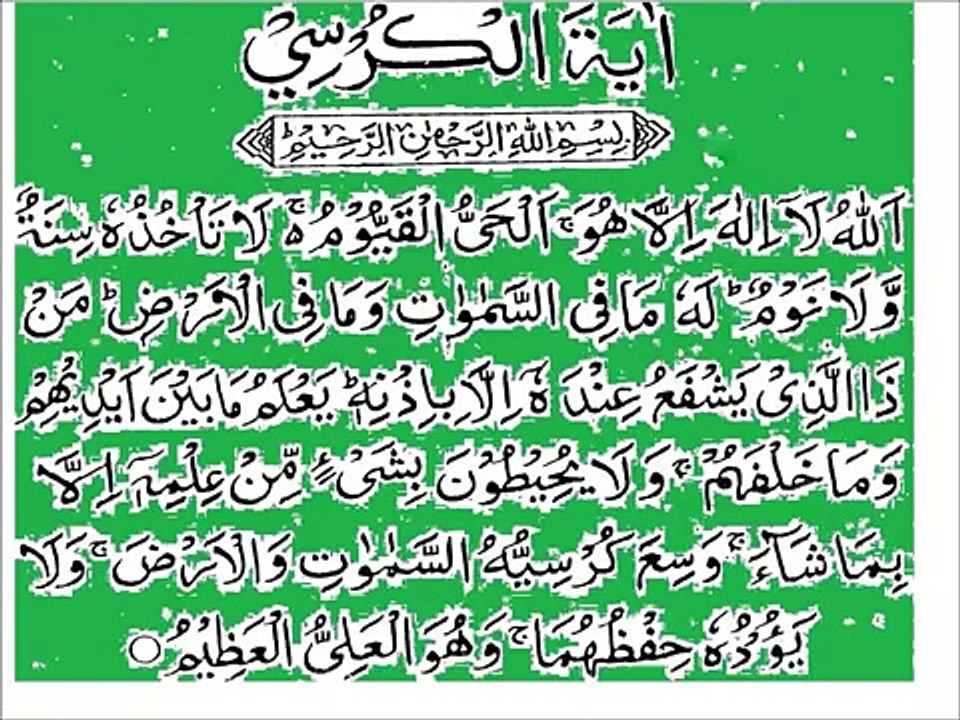 اٰيَةَ الْكُرْسِيْ
بِسْمِ اللّٰهِ الرَّحْمٰنِ الرَّحِيْمِ ؕ
اَللّٰهُ لَاۤ اِلٰهَ اِلَّا هُوَ ۚ اَلْحَىُّ الْقَيُّوْمُ ۚ لَا تَاْخُذُهٗ سِنَةٌ
وَّلَا نَوْمٌ ؕ لَهٗ مَا فِى السَّمٰوٰتِ وَمَا فِى الْاَرْضِ ؕ مَنْ
ذَا الَّذِىْ يَشْفَعُ عِنْدَهٗۤ اِلَّا بِاِذْنِهٖ ؕ يَعْلَمُ مَا بَيْنَ اَيْدِيْهِمْ
وَمَا خَلْفَهُمْ ۚ وَلَا يُحِيْطُوْنَ بِشَىْءٍ مِّنْ عِلْمِهٖۤ اِلَّا
بِمَا شَآءَ ۚ وَسِعَ كُرْسِيُّهُ السَّمٰوٰتِ وَالْاَرْضَ ۚ وَلَا
يَؤُدُهٗ حِفْظُهُمَا ۚ وَهُوَ الْعَلِىُّ الْعَظِيْمُ ○